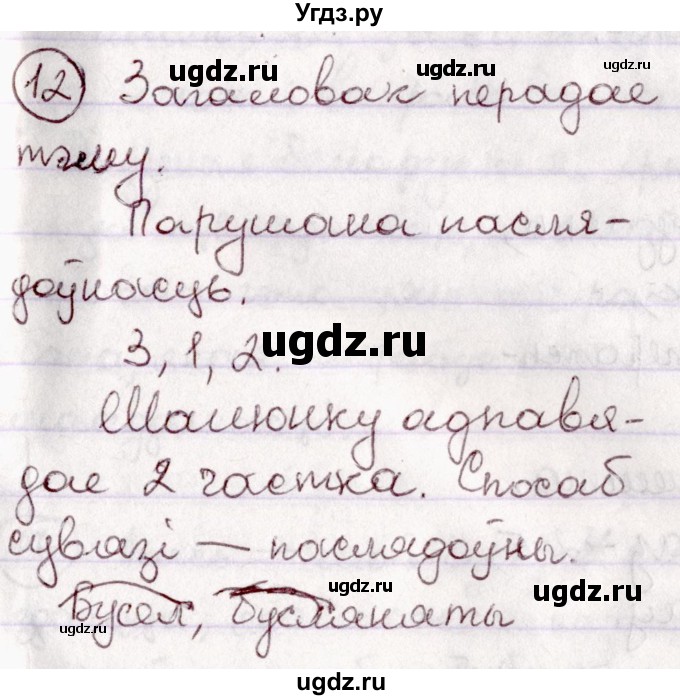 Угдз.ру
12 Загаловак перадае
ugdz.ru ugdz.ru ugdz.ru
тэму.
Парушана пасля-
доўнасць.
ugdz.ru
3, 1, 2.
Малюнку адпавя-
дае 2 частка. Спосаб
ugdz.ru ugdz.ru
сувязі — паслядоўны.
Бусел, бусляняты
ugdz.ru ugdz.ru